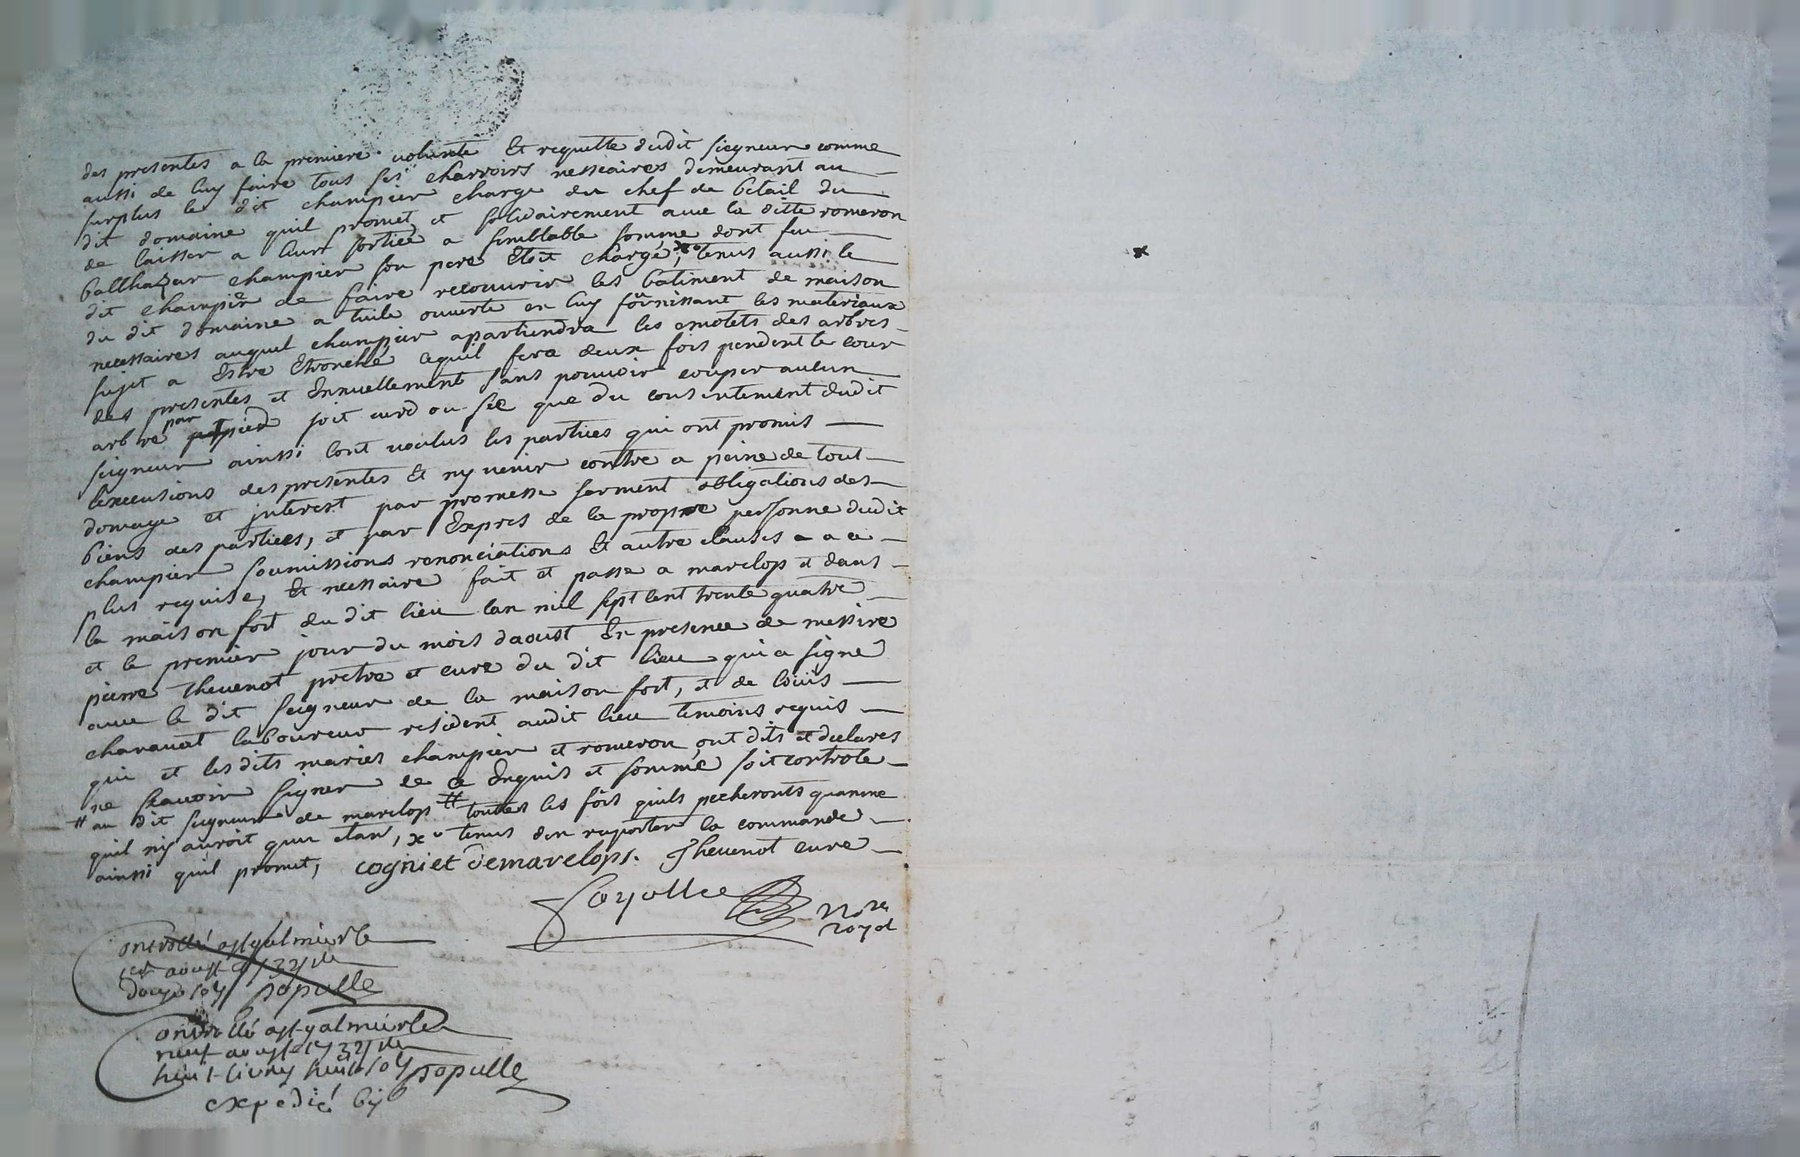 des presentes a la premiere volunté Et requette dudit seigneur comme
aussi de luy faire tous ses charroirs nessaires demeurant au
surplus le dit champier charge du chef de betail du
dit domaine quil promet et solidairement avec la ditte romeron
de laisser a leur sortiee a semblable somme dont feu
balthazar champier son pere Etoit chargé, x° tenus aussi le
dit champier de faire recouvrir les batiment de maison
du dit domaine a tuile ouverte en luy fournissant les materiaux
necessaires auquel champier apartiendra les emotets des arbres
sujet a Estre Etronché cequil fera deux fois pendent le cour
des presentes et Ennuellement sans pouvoir couper aucun
arbre par pied soit verd ou sec que du consentement dudit
seigneur ainssi lont voulus les parties qui ont promis
lexecusions des presentes Et ny venir contre a peine de tout
domage et jnterest par promesse serment obligations des
biens des parties, et par Expres de la propre personne dudit
champier soumissions renonciations Et autre clauses a ce
plus requise, Et necssaire fait et passe a marclops et dans
la maison fort du dit lieu lan mil sept cent trente quatre
et le premier jour du mois daoust En presence de messire
pierre Thevenot prettre et curé du dit lieu qui a signé
avec le dit seigneur de la maison fort, et de loüis
charavat laboureur resident audit lieu temoins requis
qui et les dits mariés champier et romeron ont dits et declares
ne scavoir signer de ce Enquis et sommé soit controlé
# au dit seigneur de marclops # toutes les fois quils pecheronts quamme
quil ny auroit quun etan, x° tenus den raporter la commande
ainssi quil promet, cogniet demarclops. Thevenot curé
Coyollee Nore
royal
Controllé a st galmier le
aoust 1734
douze sols populle
Controllé a st galmier le
neuf aoust 1734
huit livres huit sols populle
expedié